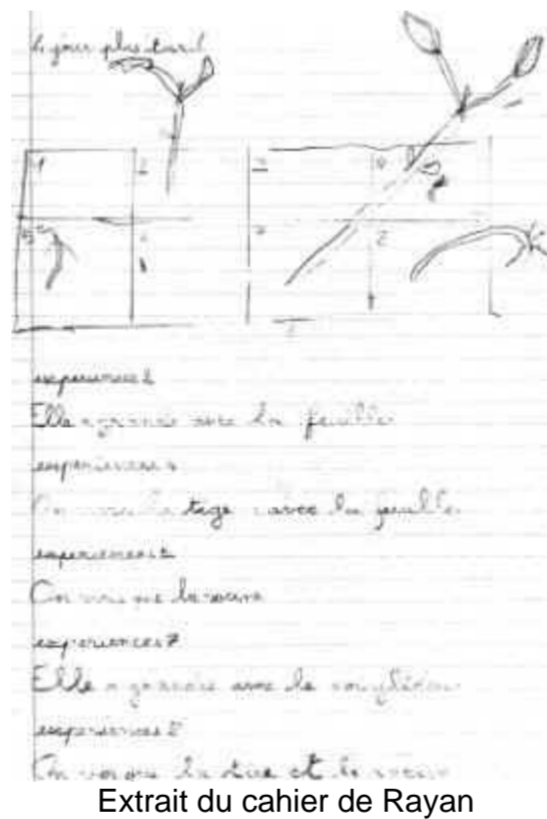 jour plus tard
1
2
3
4
5
7
8
experiences 2
Elle a grandi avec la feuille
experiences 4
On voit la tige avec la feuille
experiences
On voit que la racine
experiences 7
Elle a grandie avec le
experiences 8
On voit que la tige et la racine
Extrait du cahier de Rayan